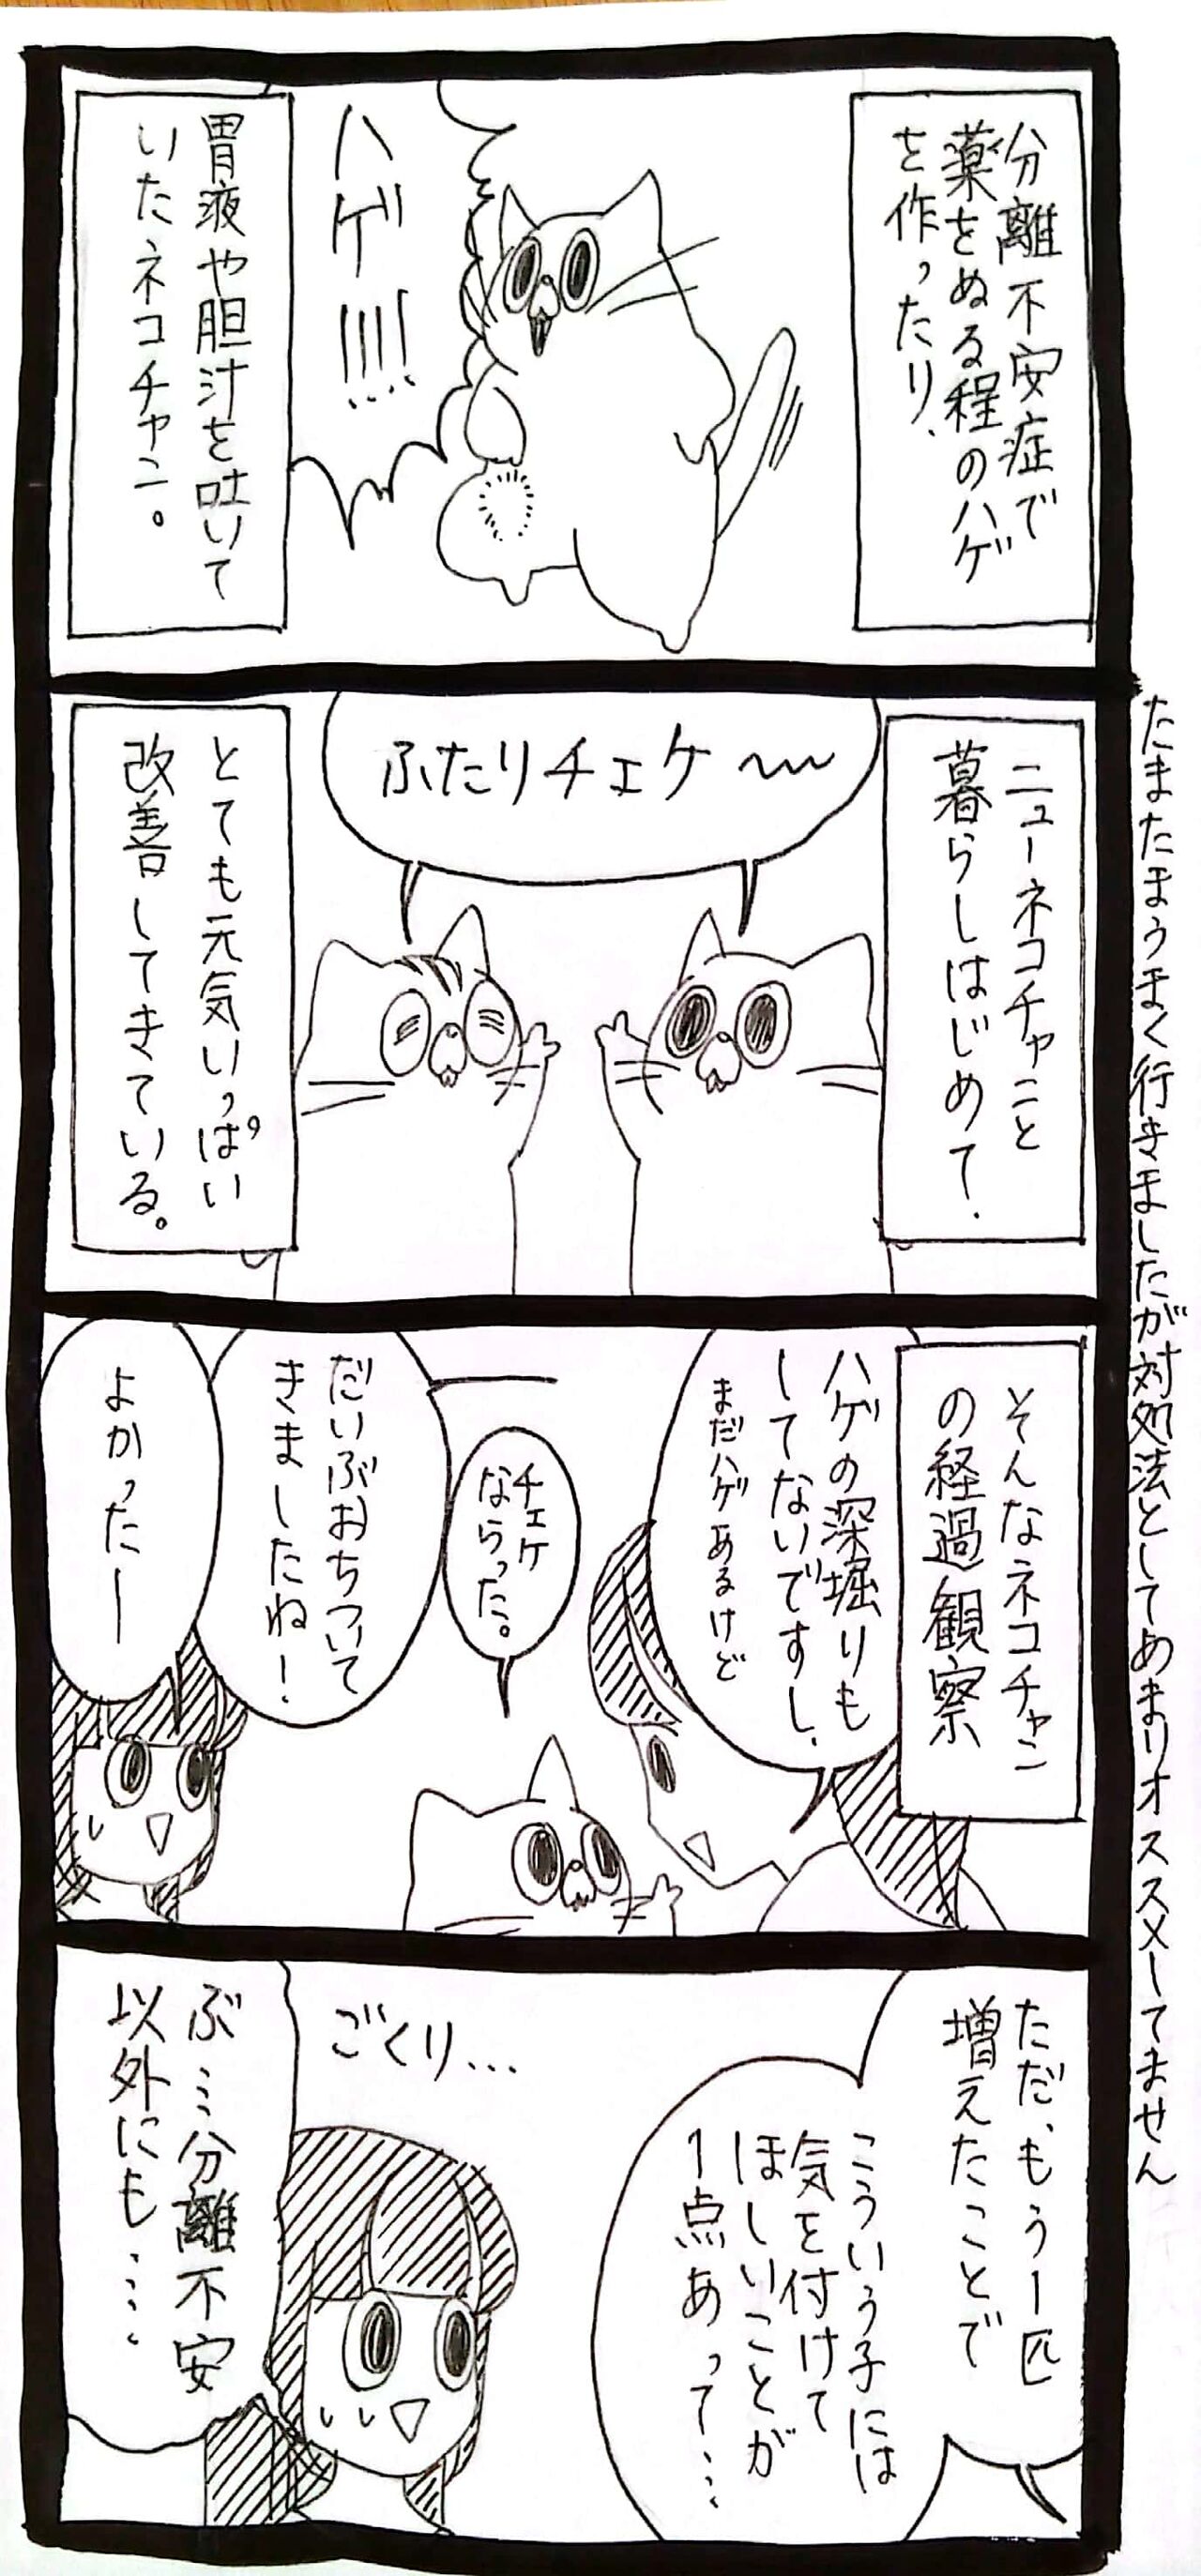 分離不安症で
薬をぬる程のハゲ
を作ったり、
ハゲ!!!!
胃液や胆汁を吐いて
いたネコチャン。
ニューネコチャンと
暮らしはじめて、
ふたりチェケ〜
とても元気いっぱい
改善してきている。
そんなネコチャン
の経過観察
ハゲの深堀りも
してないですし、
まだハゲあるけど
チェケ
ならった。
だいぶおちついて
きましたね!
よかったー
ただ、もう1匹
増えたことで
こういう子には
気を付けて
ほしいことが
1点あって…
ごくり…
ぶ…分離不安
以外にも……
たまたまうまく行きましたが対処法としてあまりオススメしてません